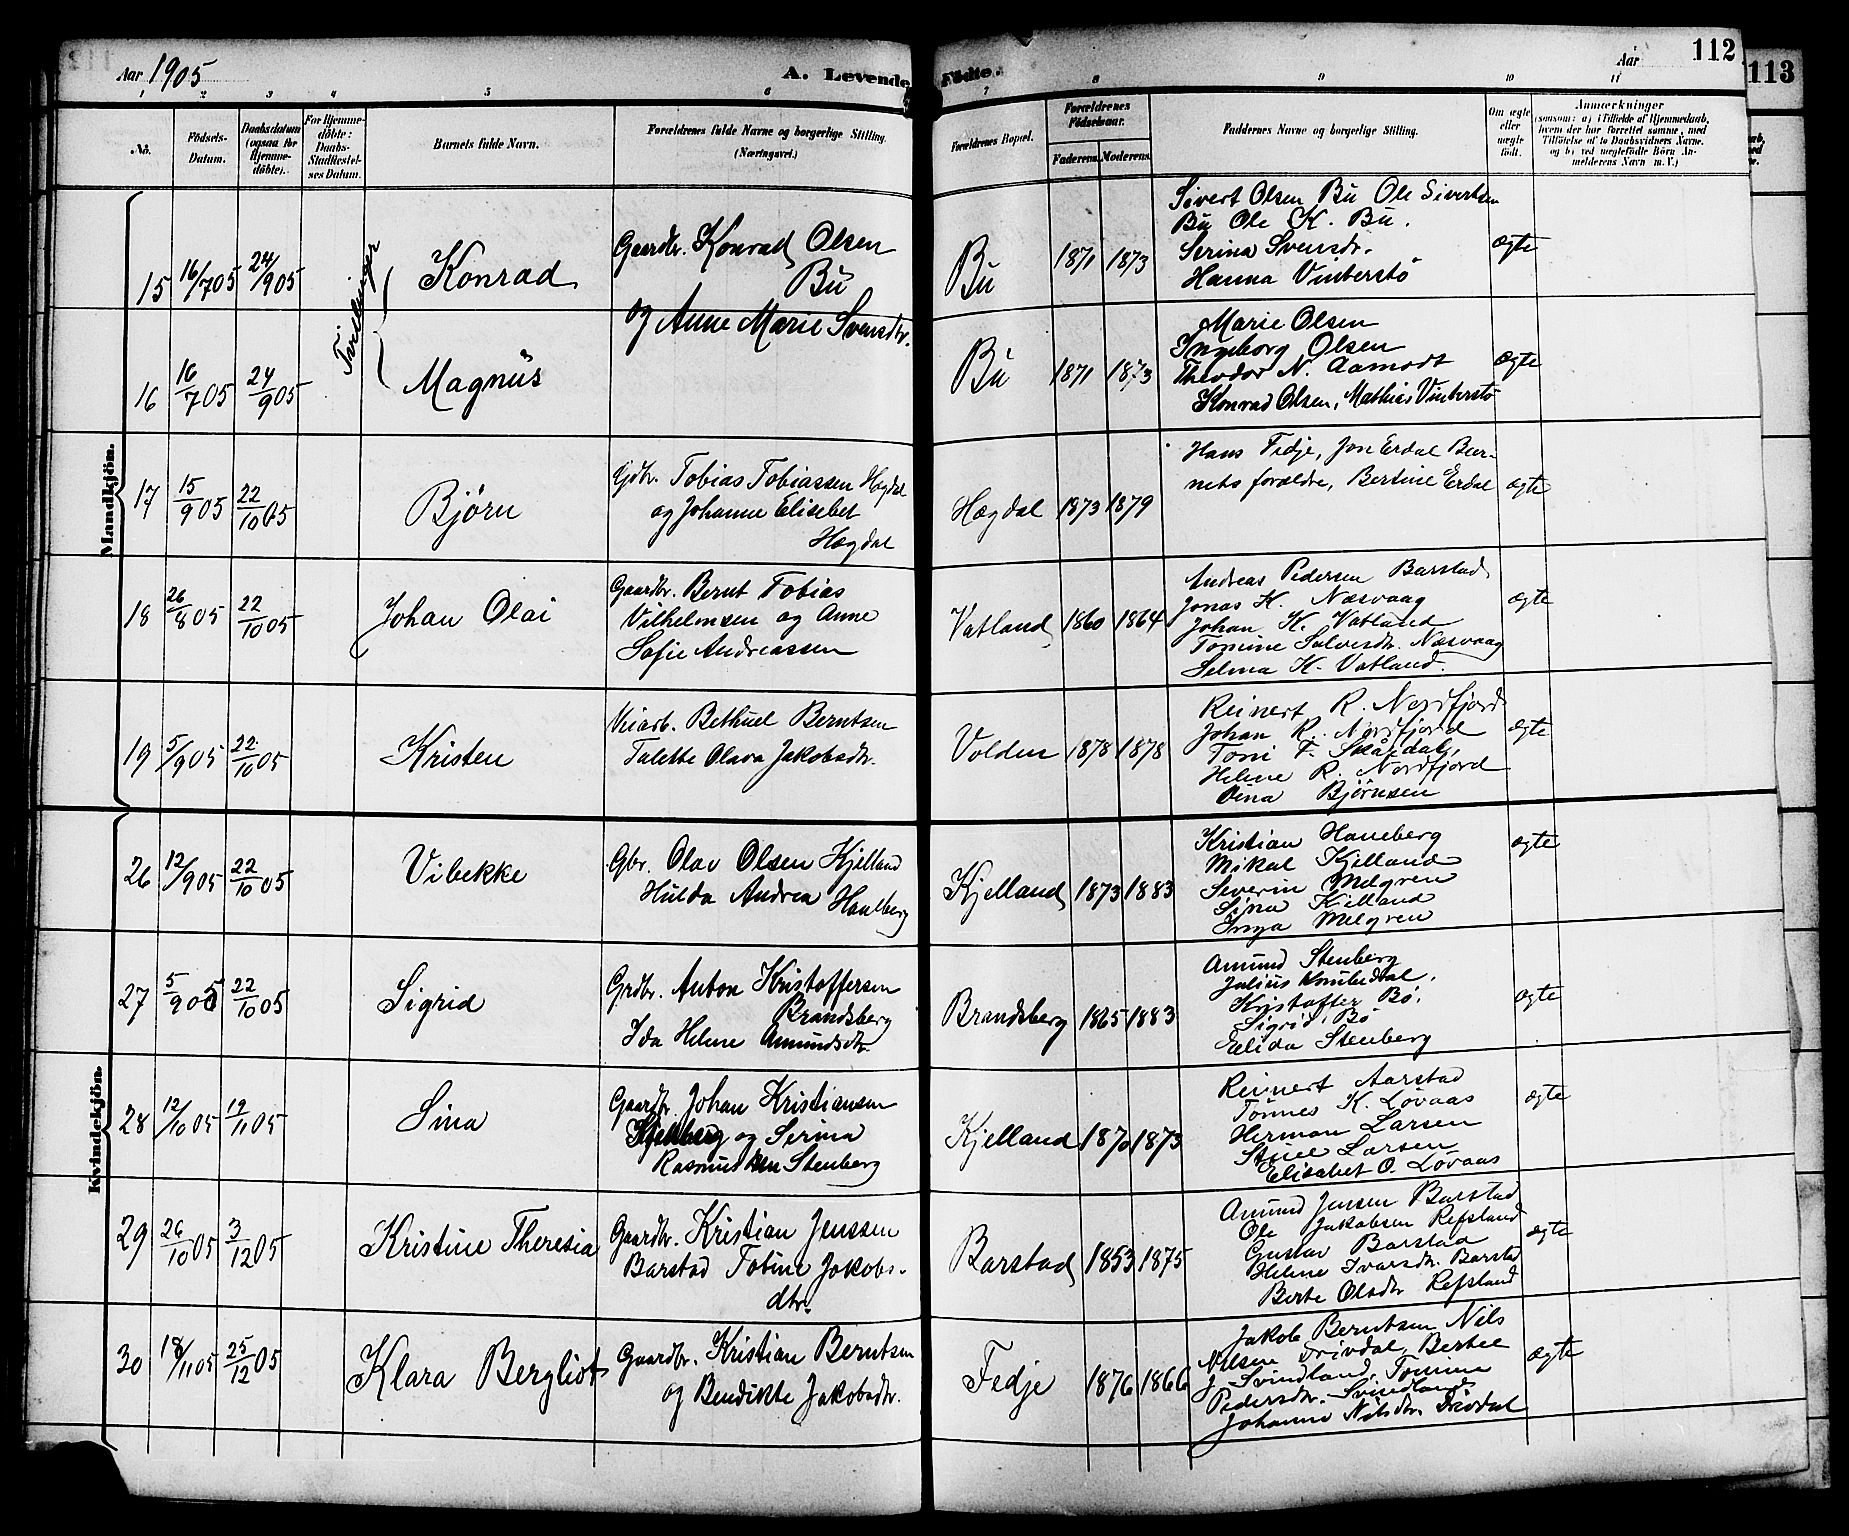 Aar 1905
A. Levende Fødte.
Aar
112
113
1 2 3 4 5 6 7 8 9 10 11
No.
Födsels-
Datum.
Daabsdatum
(ogsaa for
Hjemme-
döbte).
For Hjemme-
döbte:
Daabs-
Stadfæstel-
ses Datum.
Barnets fulde Navn.
Forældrenes fulde Navne og borgerlige Stilling.
(Næringsvei.)
Forældrenes Bopæl.
Forældrenes
Födselsaar.
Faderens. Moderens.
Faddernes Navne og borgerlige Stilling.
Om ægte
eller
uægte
född.
Anmærkninger
(saasom: a) i Tilfælde af Hjemmedaab,
hvem der har forrettet samme, med
Tilföielse af to Daabsvidners Navne.
og b) ved uægtefödte Börn An-
melderens Navn m. V.)
Mandkjön.
Tvillinger
15 16/7 05 24/9 05 Konrad
Gaardbr. Konrad Olsen
Bu
og Anne Marie Svensdtr.
Bu 1871 1873
Sivert Olsen Bu Ole Sivertsen
Bu Ole K. Bu.
Serina Svensdr.
Hanna Vinterstø
ægte
16 16/7 05 24/9 05 Magnus
Bu 1871 1873
Marie Olsen
Ingeborg Olsen
Theodor N. Aamodt
Konrad Olsen, Mathias Vinterstø
ægte
17 15/9 05 22/10 05 Bjørn
Gdbr. Tobias Tobiassen Hægdal
og Johanne Elisebet
Hægdal
Hægdal 1873 1879
Hans Fedje, Jon Erdal Bar-
nets forældre, Bertine Erdal
ægte
18 26/8 05 22/10 05 Johan Olai
Gaardbr. Bernt Tobias
Vilhelmsen og Anne
Sofie Andreassen
Vatland 1860 1864
Andreas Pedersen Barstad
Jonas K. Næsvaag
Johan K. Vatland
Tomine Salvesdr. Næsvaag
Selma K. Vatland.
ægte
19 5/9 05 22/10 05 Kristen
Veiarb. Bethuel Berntsen
Talette Olava Jakobsdtr.
Volden 1878 1878
Reinert R. Nordfjord
Johan R. Nordfjord
Toni T. Skårdal,
Helene R. Nordfjord
Bjørnsen
ægte
Kvindekjön.
26 12/9 05 22/10 05 Vibekke
Gbr. Olav Olsen Kjelland
Hulda Andrea Haneberg
Kjelland 1873 1883
Kristian Haneberg
Mikal Kjelland
Severin Melgren
Sina Kjelland
Inga Melgren
ægte
27 5/9 05 22/10 05 Sigrid
Grdbr. Anton Kristoffersen
Brandsberg
Ida Helene Amundsdtr.
Brandsberg 1865 1883
Amund Stenberg
Julius Knubedal.
Kristoffer Bø.
Sigrid Bø
Elida Stenberg
ægte
28 12/10 05 19/11 05 Sina
Gaardbr. Johan Kristiansen
og Serina
Rasmussen Stenberg
Kjelland 1870 1873
Reinert Aarstad
Tønnes K. Løvaas
Herman Larsen
Larsen
Elisabet O. Løvaas
ægte
29 26/10 05 3/12 05 Kristine Theresia
Gaardbr. Kristian Jenssen
Barstad Tobine Jakobs-
dtr.
Barstad 1853 1875
Amund Jensen Barstad
Ole Jakobsen Refsland
Gustav Barstad
Helene Ivarsdtr. Barstad
Berte Olsdtr Refsland
ægte
30 18/11 05 25/12 05 Klara Bergliot
Gaardbr. Kristian Berntsen
og Bendikte Jakobsdtr.
Fedje 1876 1866
Jakob Berntsen Nils
Nilsen Drivdal, Bertel
J. Svindland, Tomine
Pedersdtr. Svindland
Johanne Nilsdtr. Drivdal
ægte